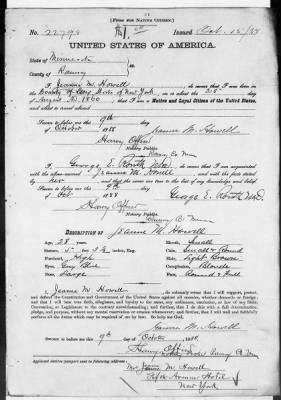 [FROM NATIVE CITIZEN.]
No. 22793 Issued Oct. 12/88
UNITED STATES OF AMERICA.
State of Minnesota
County of Ramsey
I, Jeannie M. Howell, do swear that I was born in the
County of State of New York, on the
August A.D. 1860 that I am a Native and Loyal Citizen of the United States,
and about to travel abroad.
Sworn to before me this 9th
October 1888 Jeannie M. Howell
Harry
Notary Public,
Ramsey Co Minn
I, George E. do swear that I am acquainted
with the above-named Jeannie M. Howell and with the facts stated
by her and that the same are true to the best of my knowledge and belief.
Sworn to before me this 9th
Oct 1888 George E.
Harry
Notary Public
Ramsey Co Minn
DESCRIPTION OF Jeannie M. Howell
Age, 28 years Mouth, Small
Stature, 5 feet inches, Eng. Chin, Small & Round
Forehead, High Hair, Light Brown
Eyes, Blue Complexion, Blonde
Nose, Large Face, Round & Full
I, Jeannie M. Howell do solemnly swear that I will support, protect,
and defend the Constitution and Government of the United States against all enemies, whether domestic or foreign;
and that I will bear true faith, allegiance, and loyalty to the same, any ordinance, resolution, or law of any State,
Convention, or Legislature to the contrary notwithstanding; and further, that I do this with a full determination,
pledge, and purpose, without any mental reservation or evasion whatsoever; and further, that I will well and faithfully
perform all the duties which may be required of me by law. So help me God.
Jeannie M. Howell
Sworn to before me this 9th October 1888,
Harry
Notary Public Ramsey Co Minn
Applicant desires passport sent to following address:
Jeannie M Howell
Fifth Avenue Hotel
New York